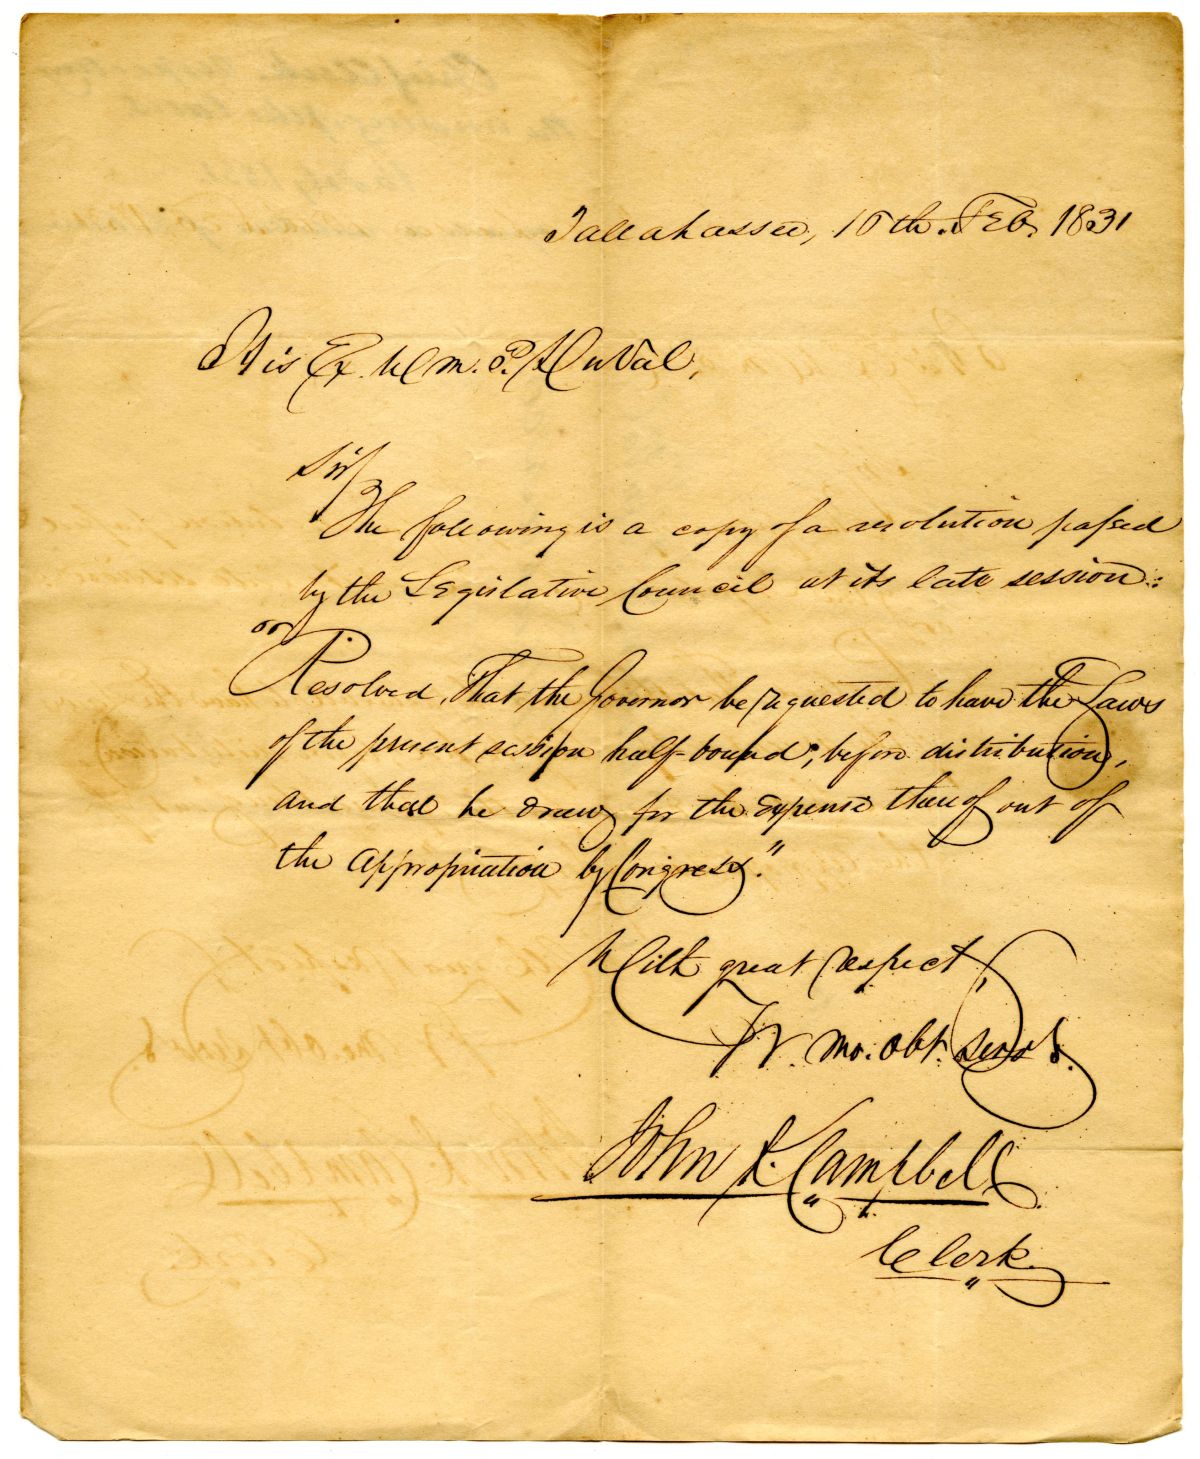 Tallahassee, 10th. Feb. 1831
His Ex. Wm. P. DuVal,
Sir/
The following is a copy of a resolution passed
by the Legislative Council at its late session:
"Resolved, That the Governor be requested to have the Laws
of the present session half-bound, before distribution,
and that he draw for the expense thereof out of
the appropriation by Congress."
With great respect,
Yr. mo. obt. servt.
John K. Campbell
Clerk